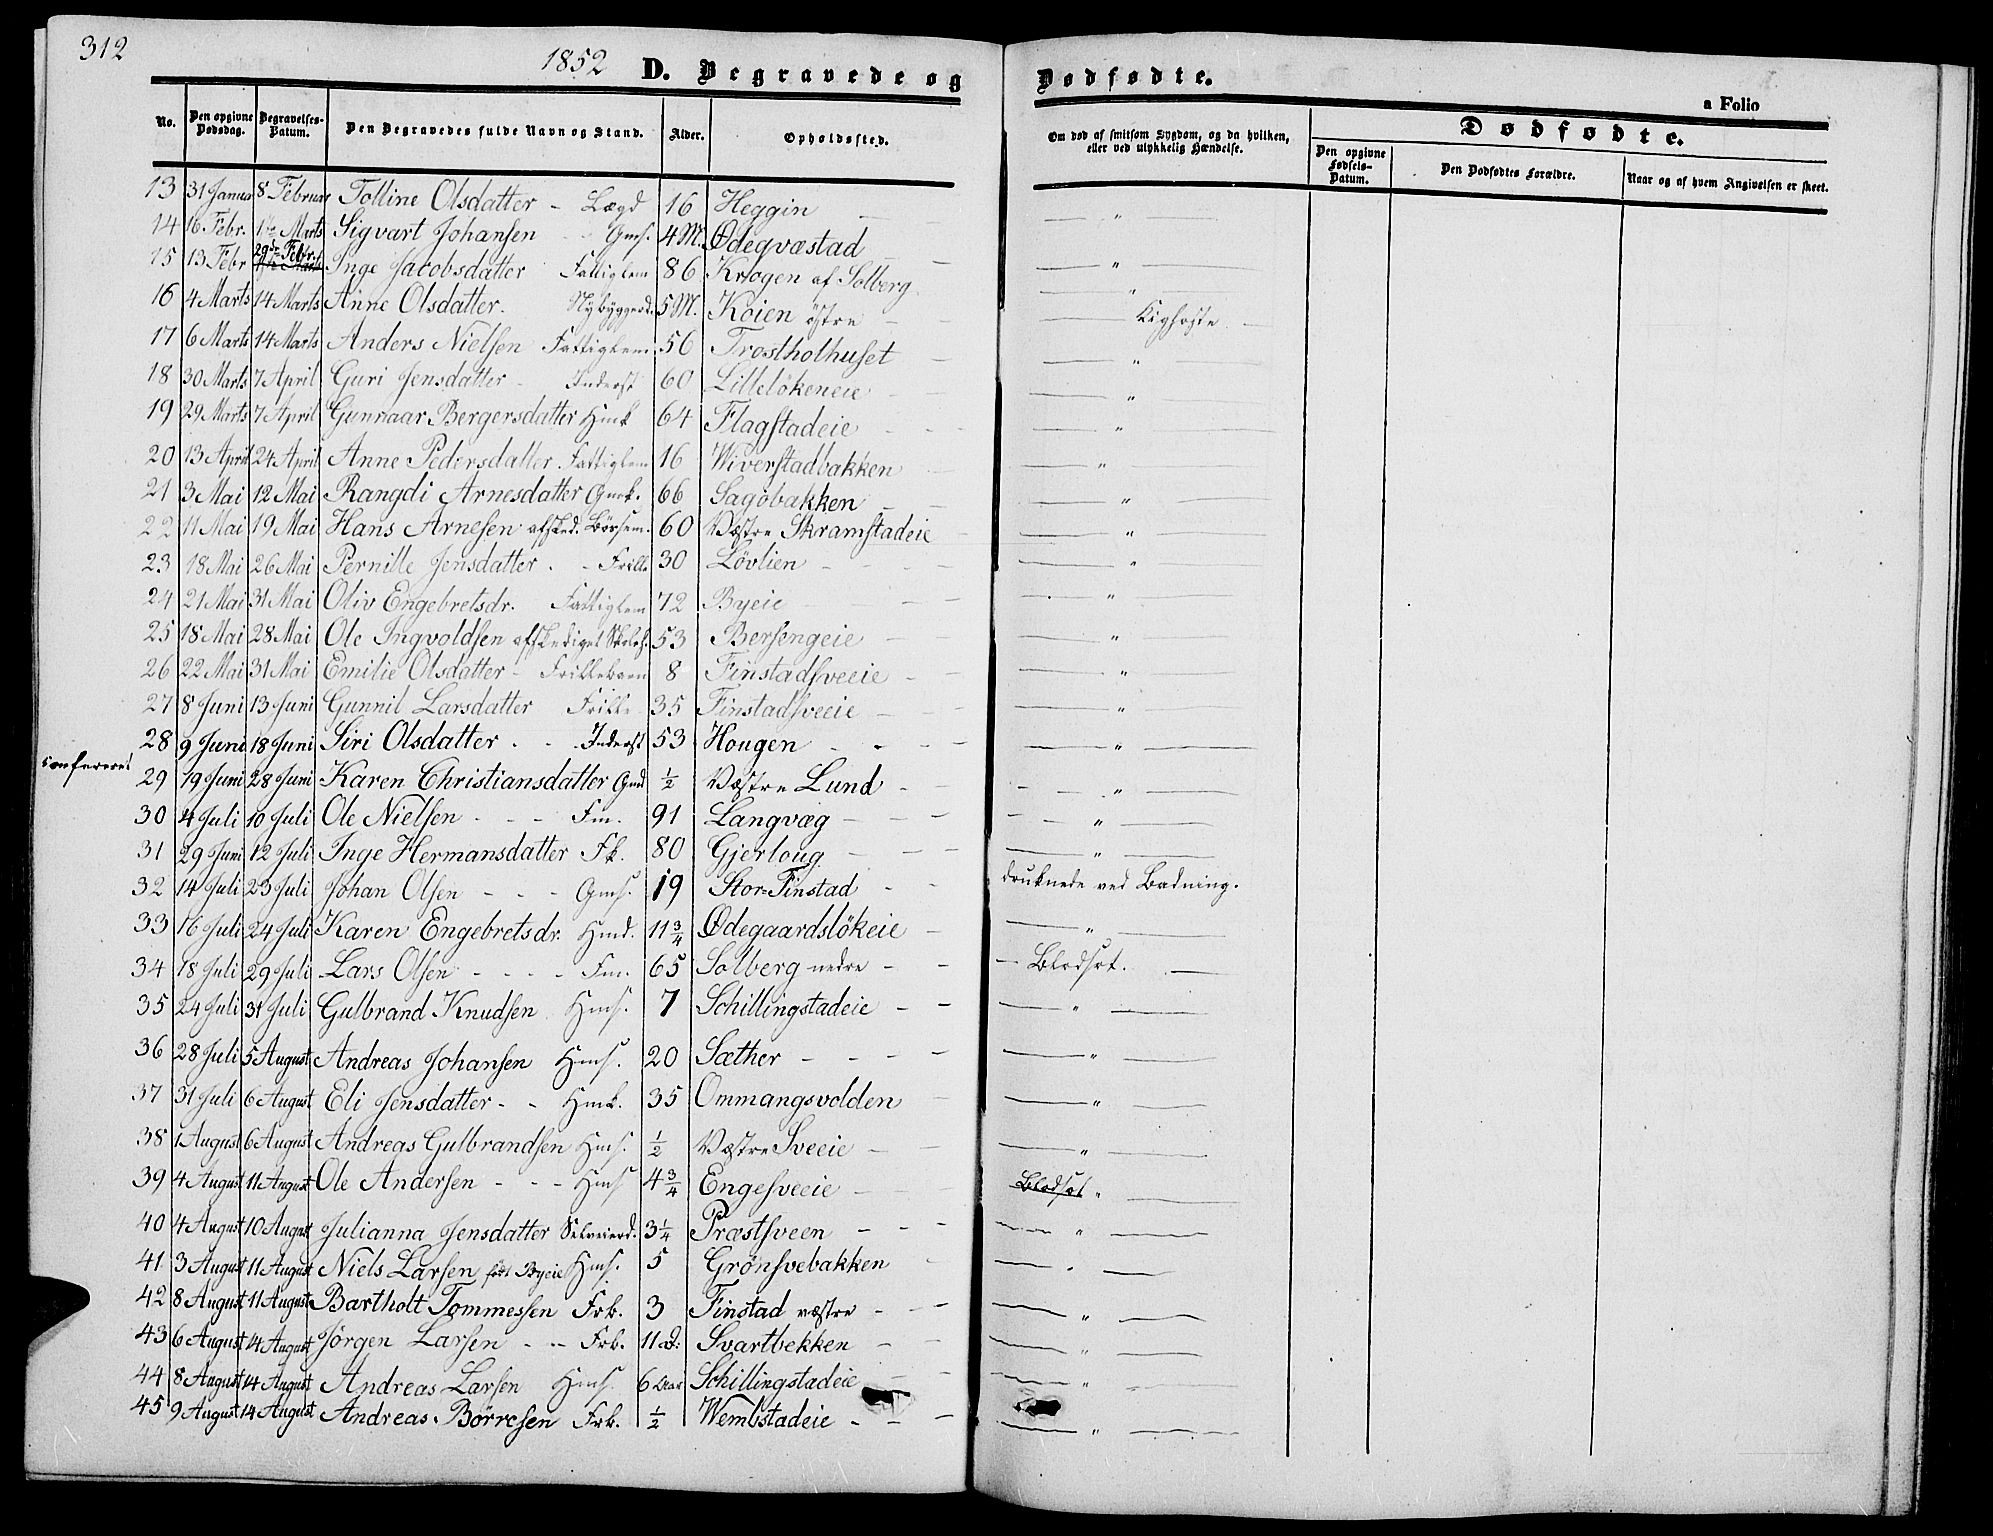 312
1852 D. Begravede og Dødfødte.
a Folio
No. Den opgivne Dødsdag. Begravelses-Datum. Den Begravedes fulde Navn og Stand. Alder. Opholdssted. Om død af smitsom Sygdom, og da hvilken, eller ved ulykkelig Hændelse. Dødfødte.
Den opgivne Fødsels-Datum. Den Dødfødtes Forældre. Naar og af hvem Angivelsen er skeet.
13 31 Januar 8 Februar Tolline Olsdatter - Lægd 16 Heggin — " —
14 16 Febr. 1ste Marts Sigvart Johansen Gms. 4 M. Ødegvæstad — " —
15 13 Febr 29de Febr. Inge Jacobsdatter Fattiglem 86 Krogen af Solberg — " —
16 4 Marts 14 Marts Anne Olsdatter. Nybyggerd. 5 M. Koien östre — Kighoste —
17 6 Marts 14 Marts Anders Nielsen Fattiglem 56 Trostholhuset — " —
18 30 Marts 7 April Guri Jensdatter - Inderst 60 Lillelökeneie — " —
19 29 Marts 7 April Gunnaar Bergersdatter Hmk 64 Flagstadeie — " —
20 13 April 24 April Anne Pedersdatter. Fattiglem 16 Wiverstadbakken — " —
21 3 Mai 12 Mai Rangdi Arnesdatter Gmk. 66 Sagöbakken — " —
22 11 Mai 19 Mai Hans Arnesen afsked. Börsem. 60 Væstre Skramstadeie — " —
23 18 Mai 26 Mai Pernille Jensdatter. - Frille 30 Lövlien — " —
24 21 Mai 31 Mai Oliv Engebretsdr. Fattiglem 72 Byeie — " —
25 18 Mai 28 Mai Ole Ingvoldsen afskediget Skoleh. 53 Bersengeie — " —
26 22 Mai 31 Mai Emilie Olsdatter - Frillebarn 8 Finstadsveeie — " —
27 8 Juni 13 Juni Gunnil Larsdatter Frille 35 Finstadsveeie — " —
28 9 Juni 18 Juni Siri Olsdatter. - Inderst 53 Hougen — " —
confereret
29 19 Juni 28 Juni Karen Christiansdatter Gmd ½ Væstre Lund — " —
30 4 Juli 10 Juli Ole Nielsen - - - Fm. 91 Langvæg — " —
31 29 Juni 12 Juli Inge Hermansdatter Fk. 80 Gjerloug — " —
32 14 Juli 23 Juli Johan Olsen - - - Gms. 19 Stor-Finstad druknede ved Badning.
33 16 Juli 24 Juli Karen Engebretsdr. Hmd. 11¾ Ødegaardslökeie — " —
34 18 Juli 29 Juli Lars Olsen - - - Fm. 65 Solberg nedre — Blodsot. —
35 24 Juli 31 Juli Gulbrand Knudsen Hms. 7 Schillingstadeie — " —
36 28 Juli 5 August Andreas Johansen Hms. 20 Sæther — " —
37 31 Juli 6 August Eli Jensdatter - - Hmk. 35 Ommangsvolden — " —
38 1 August 6 August Andreas Gulbrandsen Hms. ½ Væstre Sveeie — " —
39 4 August 11 August Ole Andersen - - - Hms 4¾ Engesveeie Blodsot " —
40 4 August 10 August Julianna Jensdatter Selveierd. 3¼ Præstsveen — " —
41 3 August 11 August Niels Larsen födt Byeie Hms. 5 Grönsvebakken — " —
42 8 August 11 August Bartholt Tommessen Frb. 3 Finstad væstre — " —
43 6 August 14 August Jörgen Larsen - - Frb. 11 d: Svartbekken — " —
44 8 August 14 August Andreas Larsen Hms. 6 Aar Schillingstadeie — " —
45 9 August 14 August Andreas Börresen Frb. ½ Wembstadeie — " —